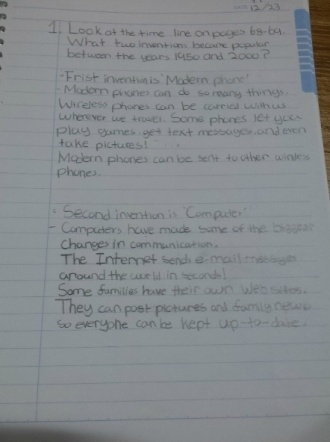 12/23
1. Look at the time line on pages 68-69.
What two inventions became popular
between the years 1950 and 2000?
- Frist invention is 'Modern phone'
- Modern phones can do so many things.
Wireless phones can be carried with us
wherever we travel. Some phones let you
play games, get text messages, and even
take pictures!
Modern phones can be sent to other
phones.
- Second invention is 'Computer'
- Computers have made some of the biggest
changes in communication.
The Internet sends e-mail messages
around the world in seconds!
Some families have their own web sites.
They can post pictures and family news
so everyone can be kept up-to-date.